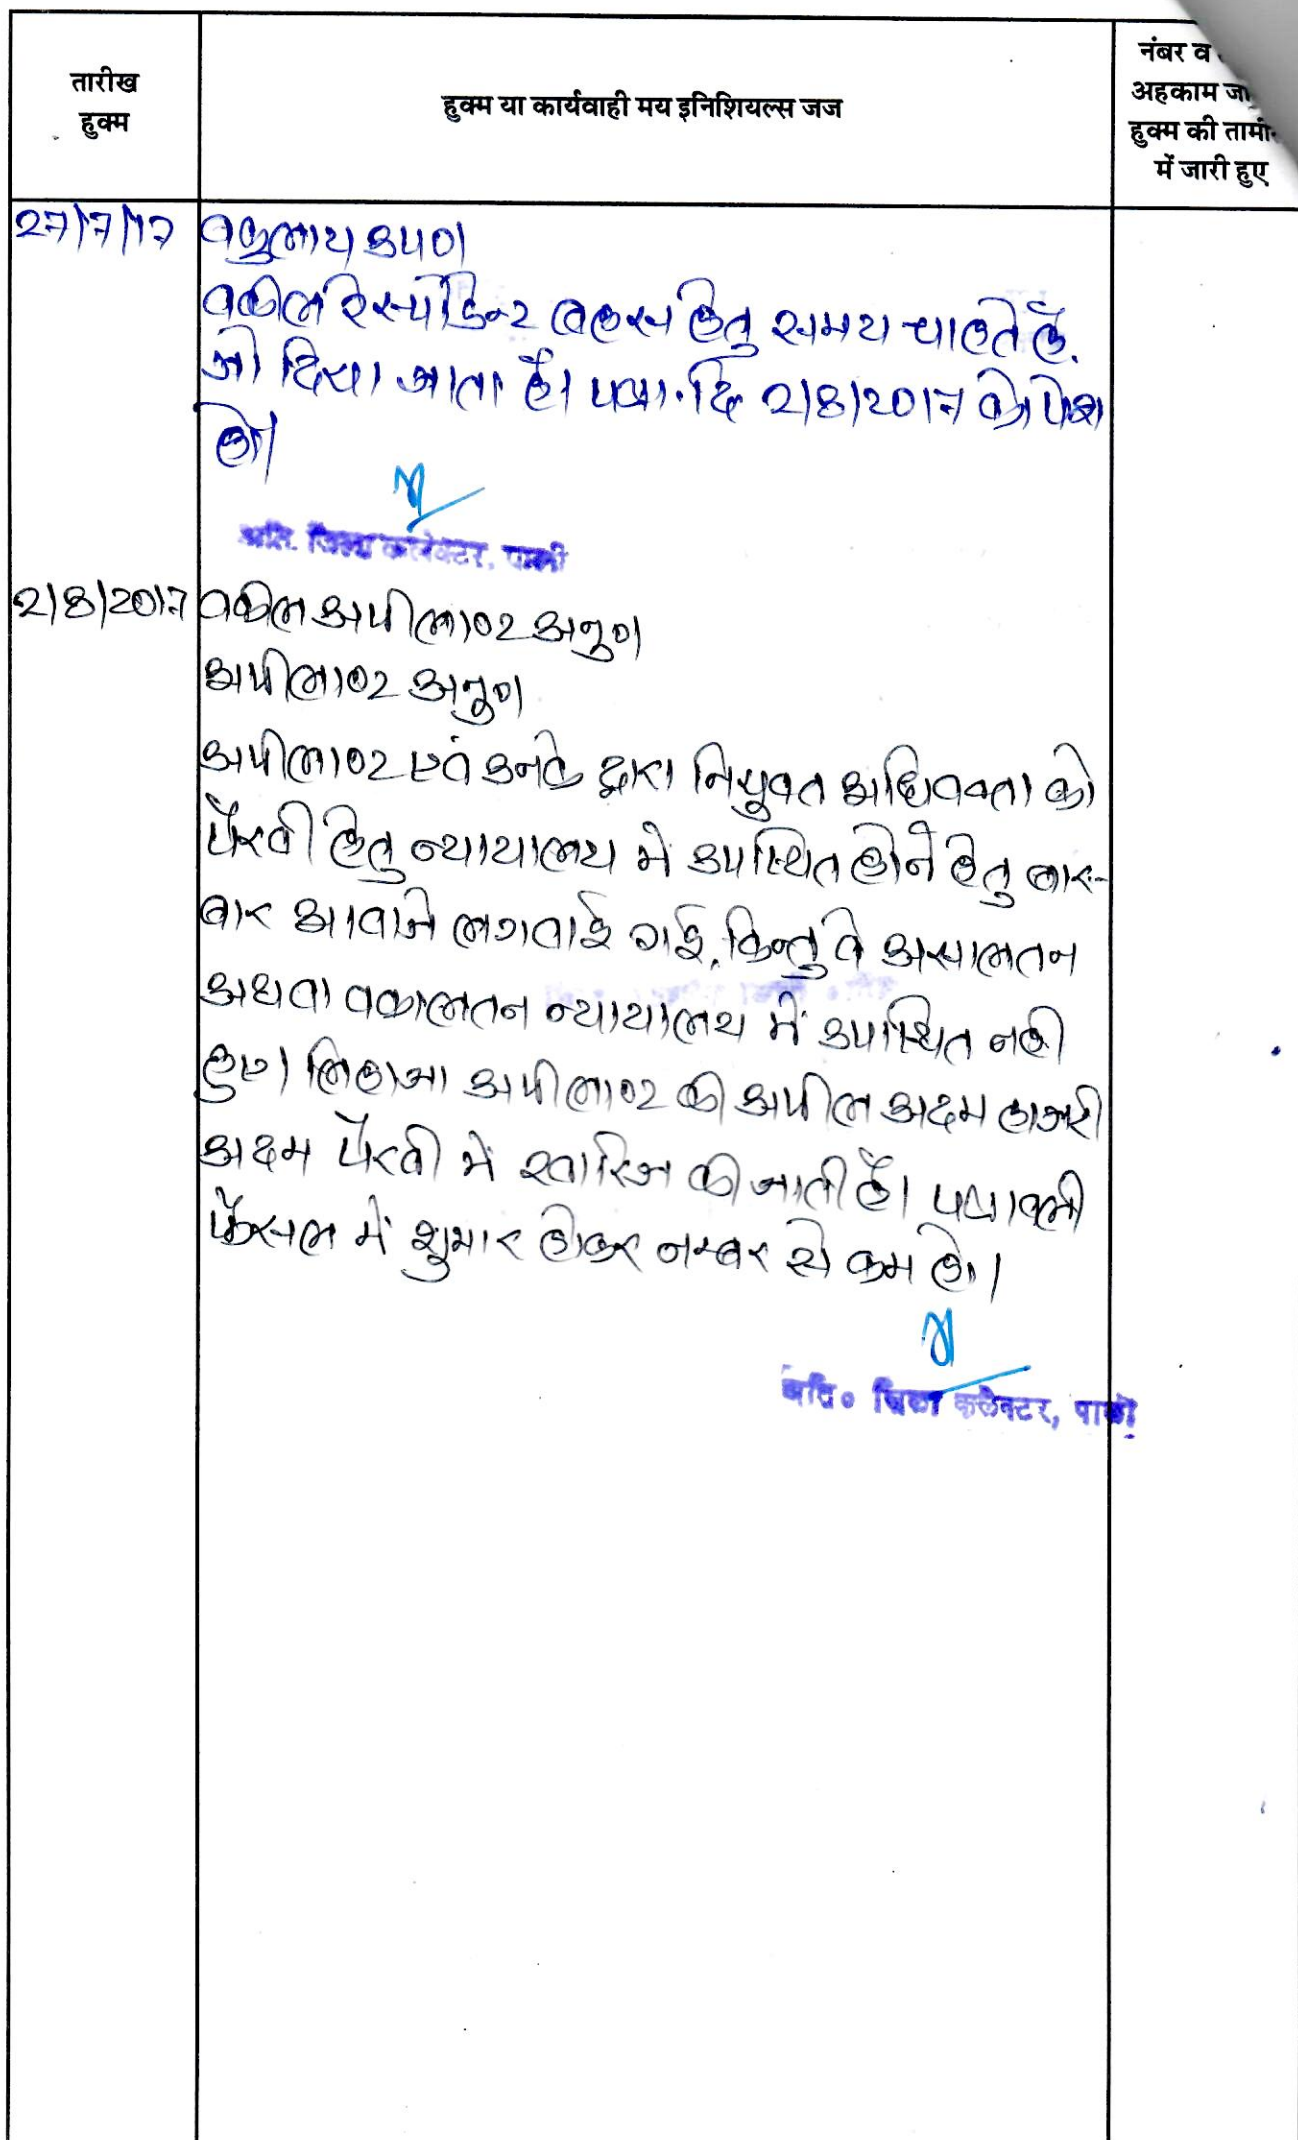 तारीख
हुक्म
हुक्म या कार्यवाही मय इनिशियल्स जज
नंबर व
अहकाम जा
हुक्म की तामी
में जारी हुए
27/7/17 वकुलाय उप०।
वकील रेस्पोडेन्ट बहस हेतु समय चाहते है.
जो दिया जाता है। पत्रा. दि 2/8/2017 को पेश
हो।
अति. जिला कलेक्टर, पाली
2/8/2017 वकील अपीलाण्ट अनु०।
अपीलाण्ट अनु०।
अपीलाण्ट एवं उनके द्वारा नियुक्त अधिवक्ता को
पैरवी हेतु न्यायालय मे उपस्थित होने हेतु बार-
बार आवाजे लगवाई गई, किन्तु वे असालतन
अथवा वकालतन न्यायालय में उपस्थित नही
हुए। लिहाजा अपीलाण्ट की अपील अदम हाजरी
अदम पैरवी मे खारिज की जाती है। पत्रावली
फैसल में शुमार होकर नम्बर से कम हो।
अति० जिला कलेक्टर, पाली